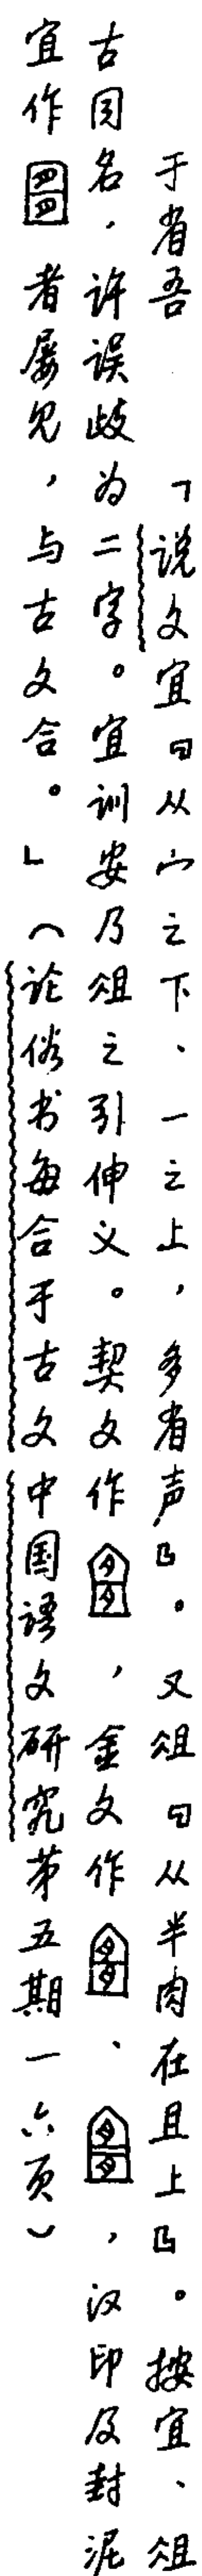 于省吾 「说文宜曰从宀之下、一之上，多省声』。又俎曰从半肉在且上』。按宜、俎
古同名，许误歧为二字。宜训安乃俎之引伸义。契文作，金文作、，汉印及封泥
宜作者屡见，与古文合。」（论俗书每合于古文中国语文研究第五期一六页）